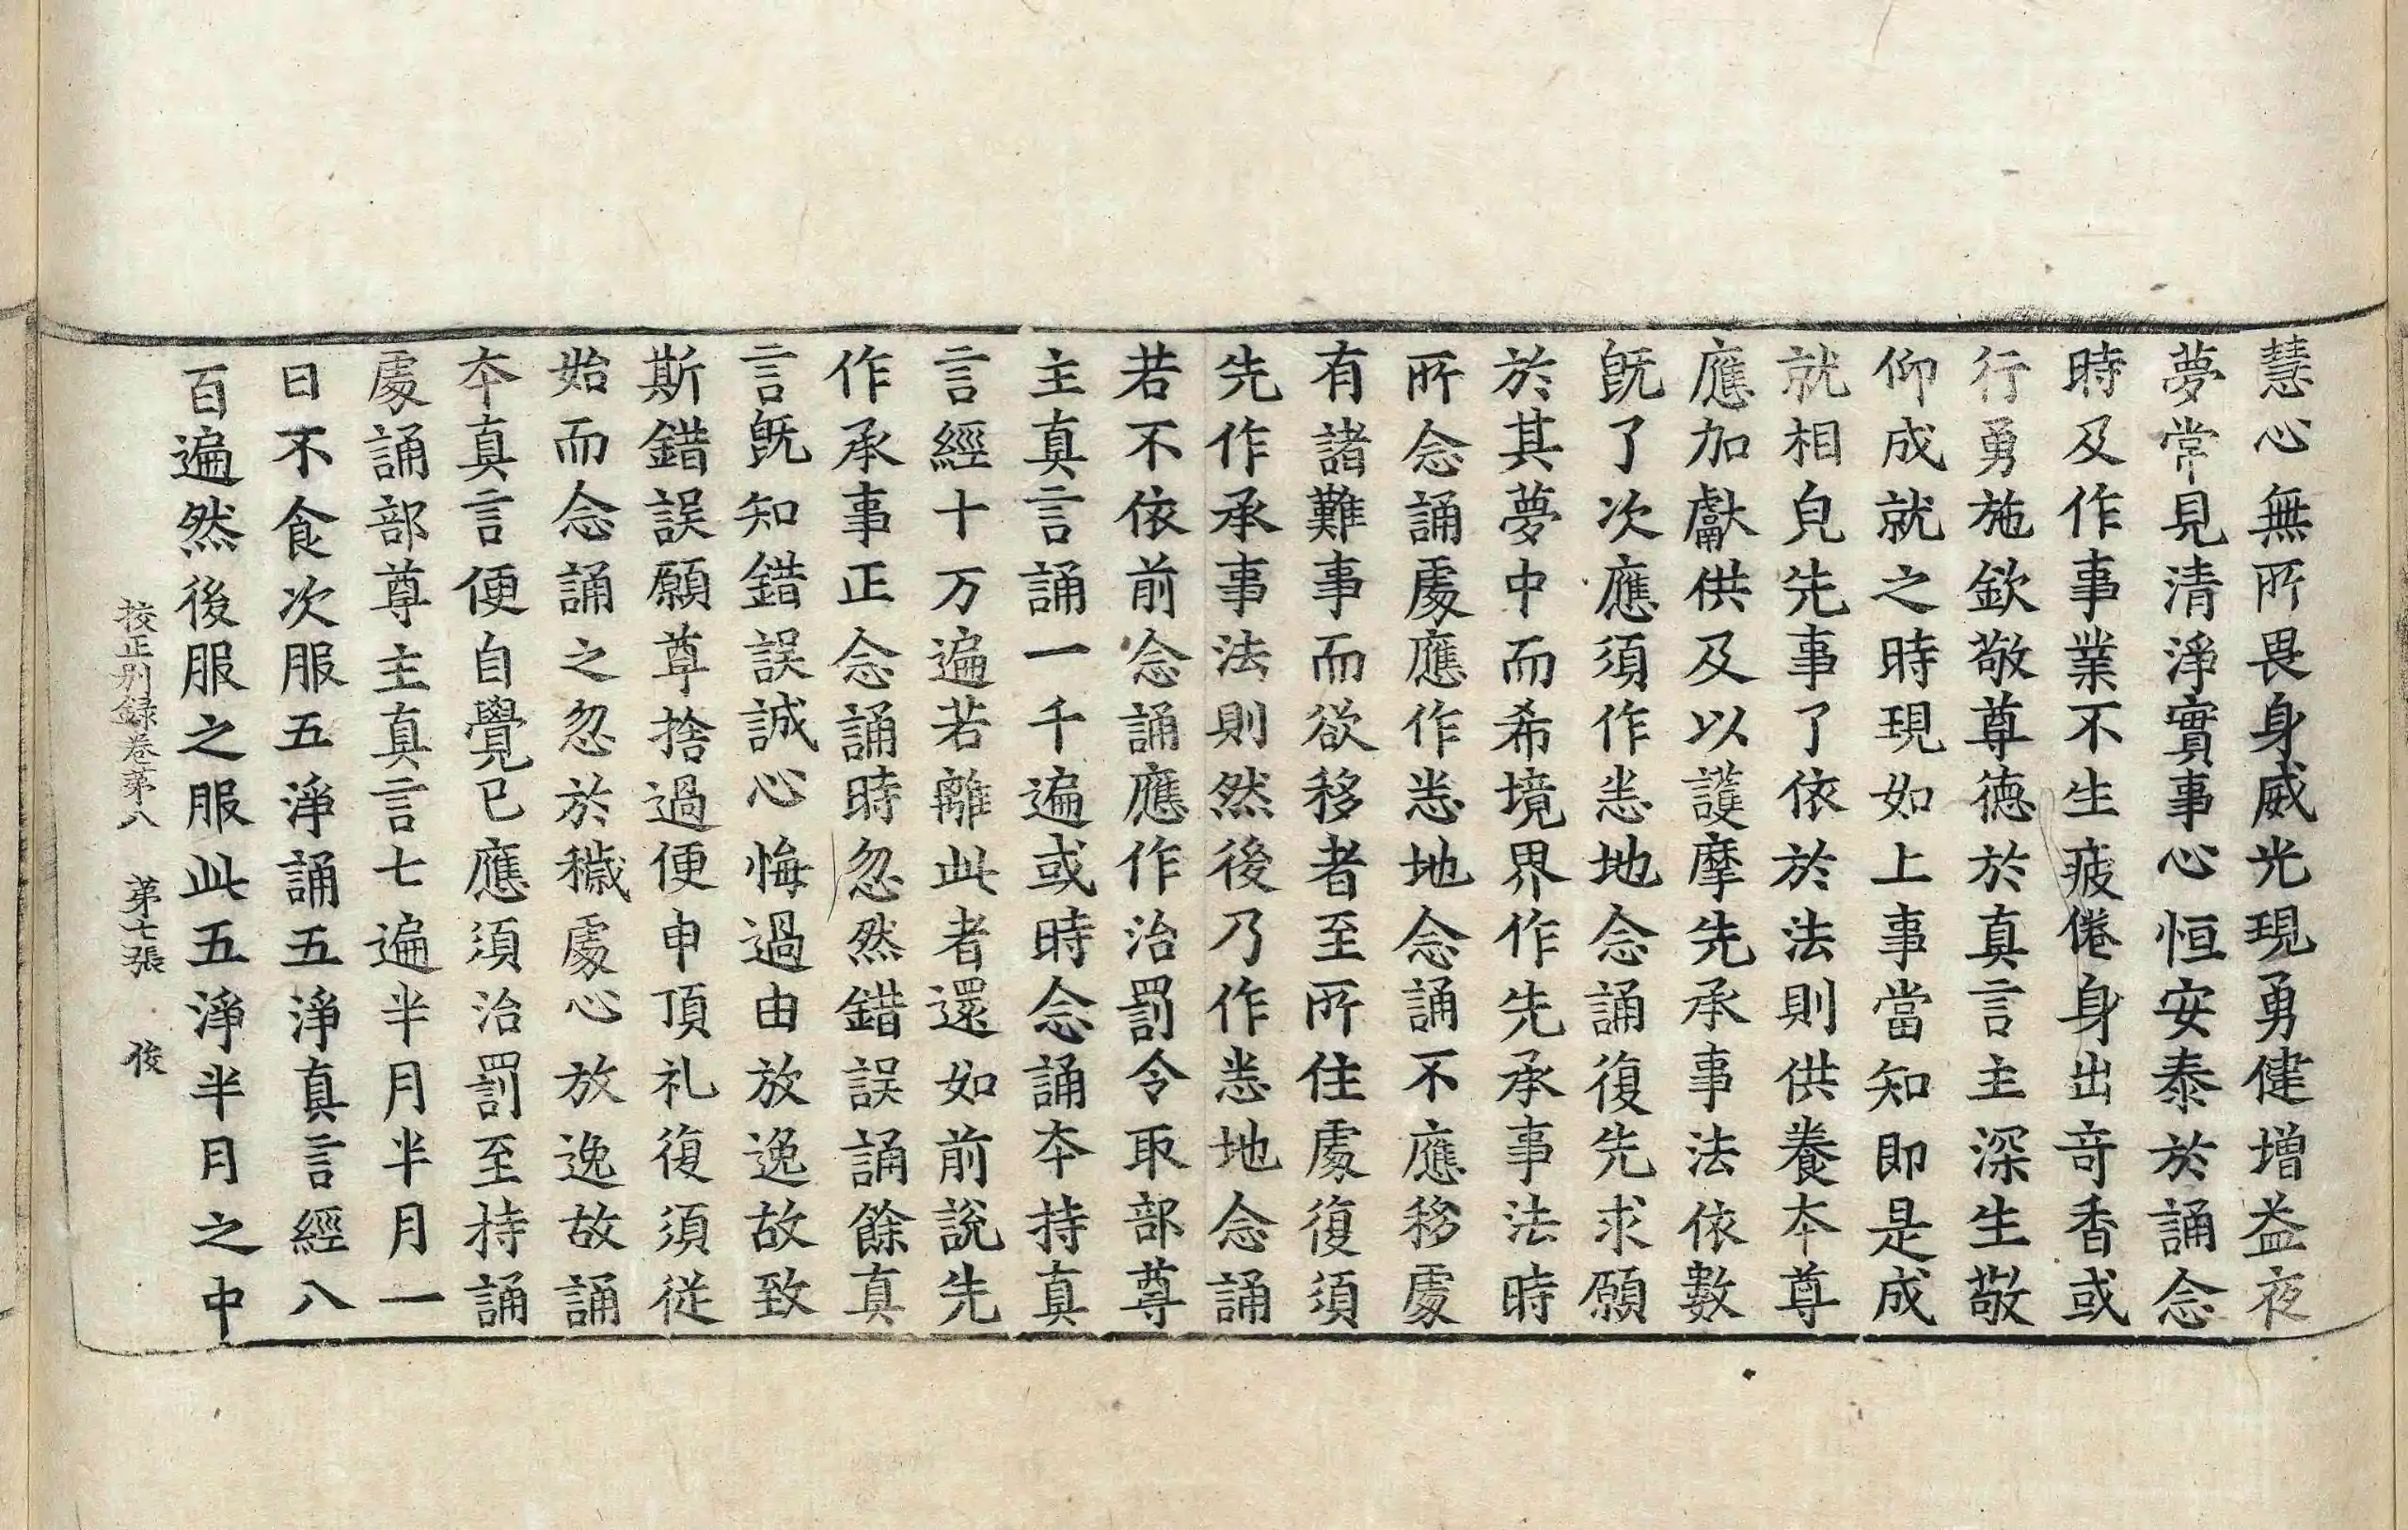 慧心無所畏身威光現勇健增益夜
夢常見清淨實事心恒安泰於誦念
時及作事業不生疲倦身出奇香或
行勇施欽敬尊德於真言主深生敬
仰成就之時現如上事當知即是成
就相皃先事了依於法則供養本尊
應加獻供及以護摩先承事法依數
既了次應須作悉地念誦復先求願
於其夢中而希境界作先承事法時
所念誦處應作悉地念誦不應移處
有諸難事而欲移者至所住處復須
先作承事法則然後乃作悉地念誦
若不依前念誦應作治罰令取部尊
主真言誦一千遍或時念誦本持真
言經十万遍若離此者還如前說先
作承事正念誦時忽然錯誤誦餘真
言既知錯誤誠心悔過由放逸故致
斯錯誤願尊捨過便申頂礼復須従
始而念誦之忽於穢處心放逸故誦
本真言便自覺已應須治罰至持誦
處誦部尊主真言七遍半月半月一
日不食次服五淨誦五淨真言經八
百遍然後服之服此五淨半月之中
校正別録卷第八　第七張　俊